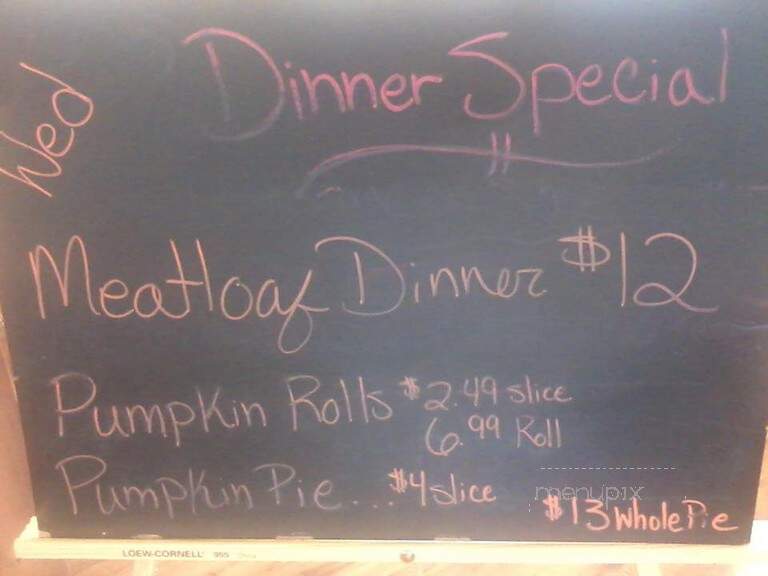 Wed
Dinner Special
Meatloaf Dinner $12
Pumpkin Rolls $2.49 slice
6.99 Roll
Pumpkin Pie... $4 slice
menupix
$13 Whole Pie
LOEW-CORNELL 955